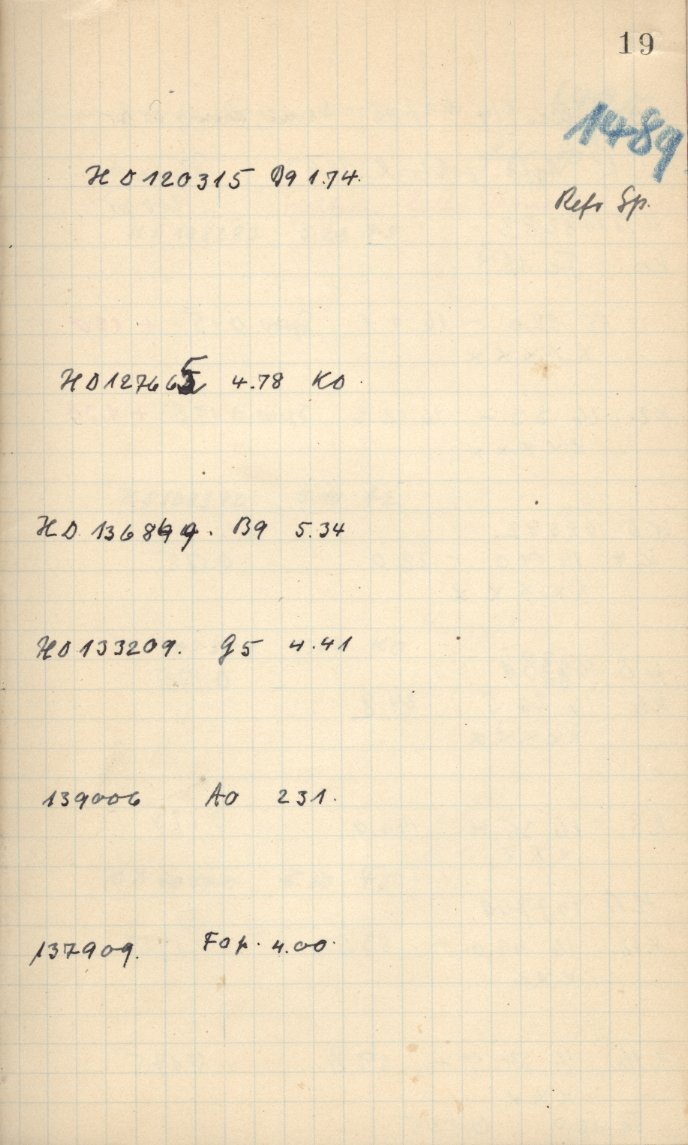 19
1489
Refr Sp.
HD120315 B9 1.74.
HD127665 4.78 K0.
HD 136849. B9 5.34
HD133209. G5 4.41
139006 A0 231.
137909. F0p. 4.00.